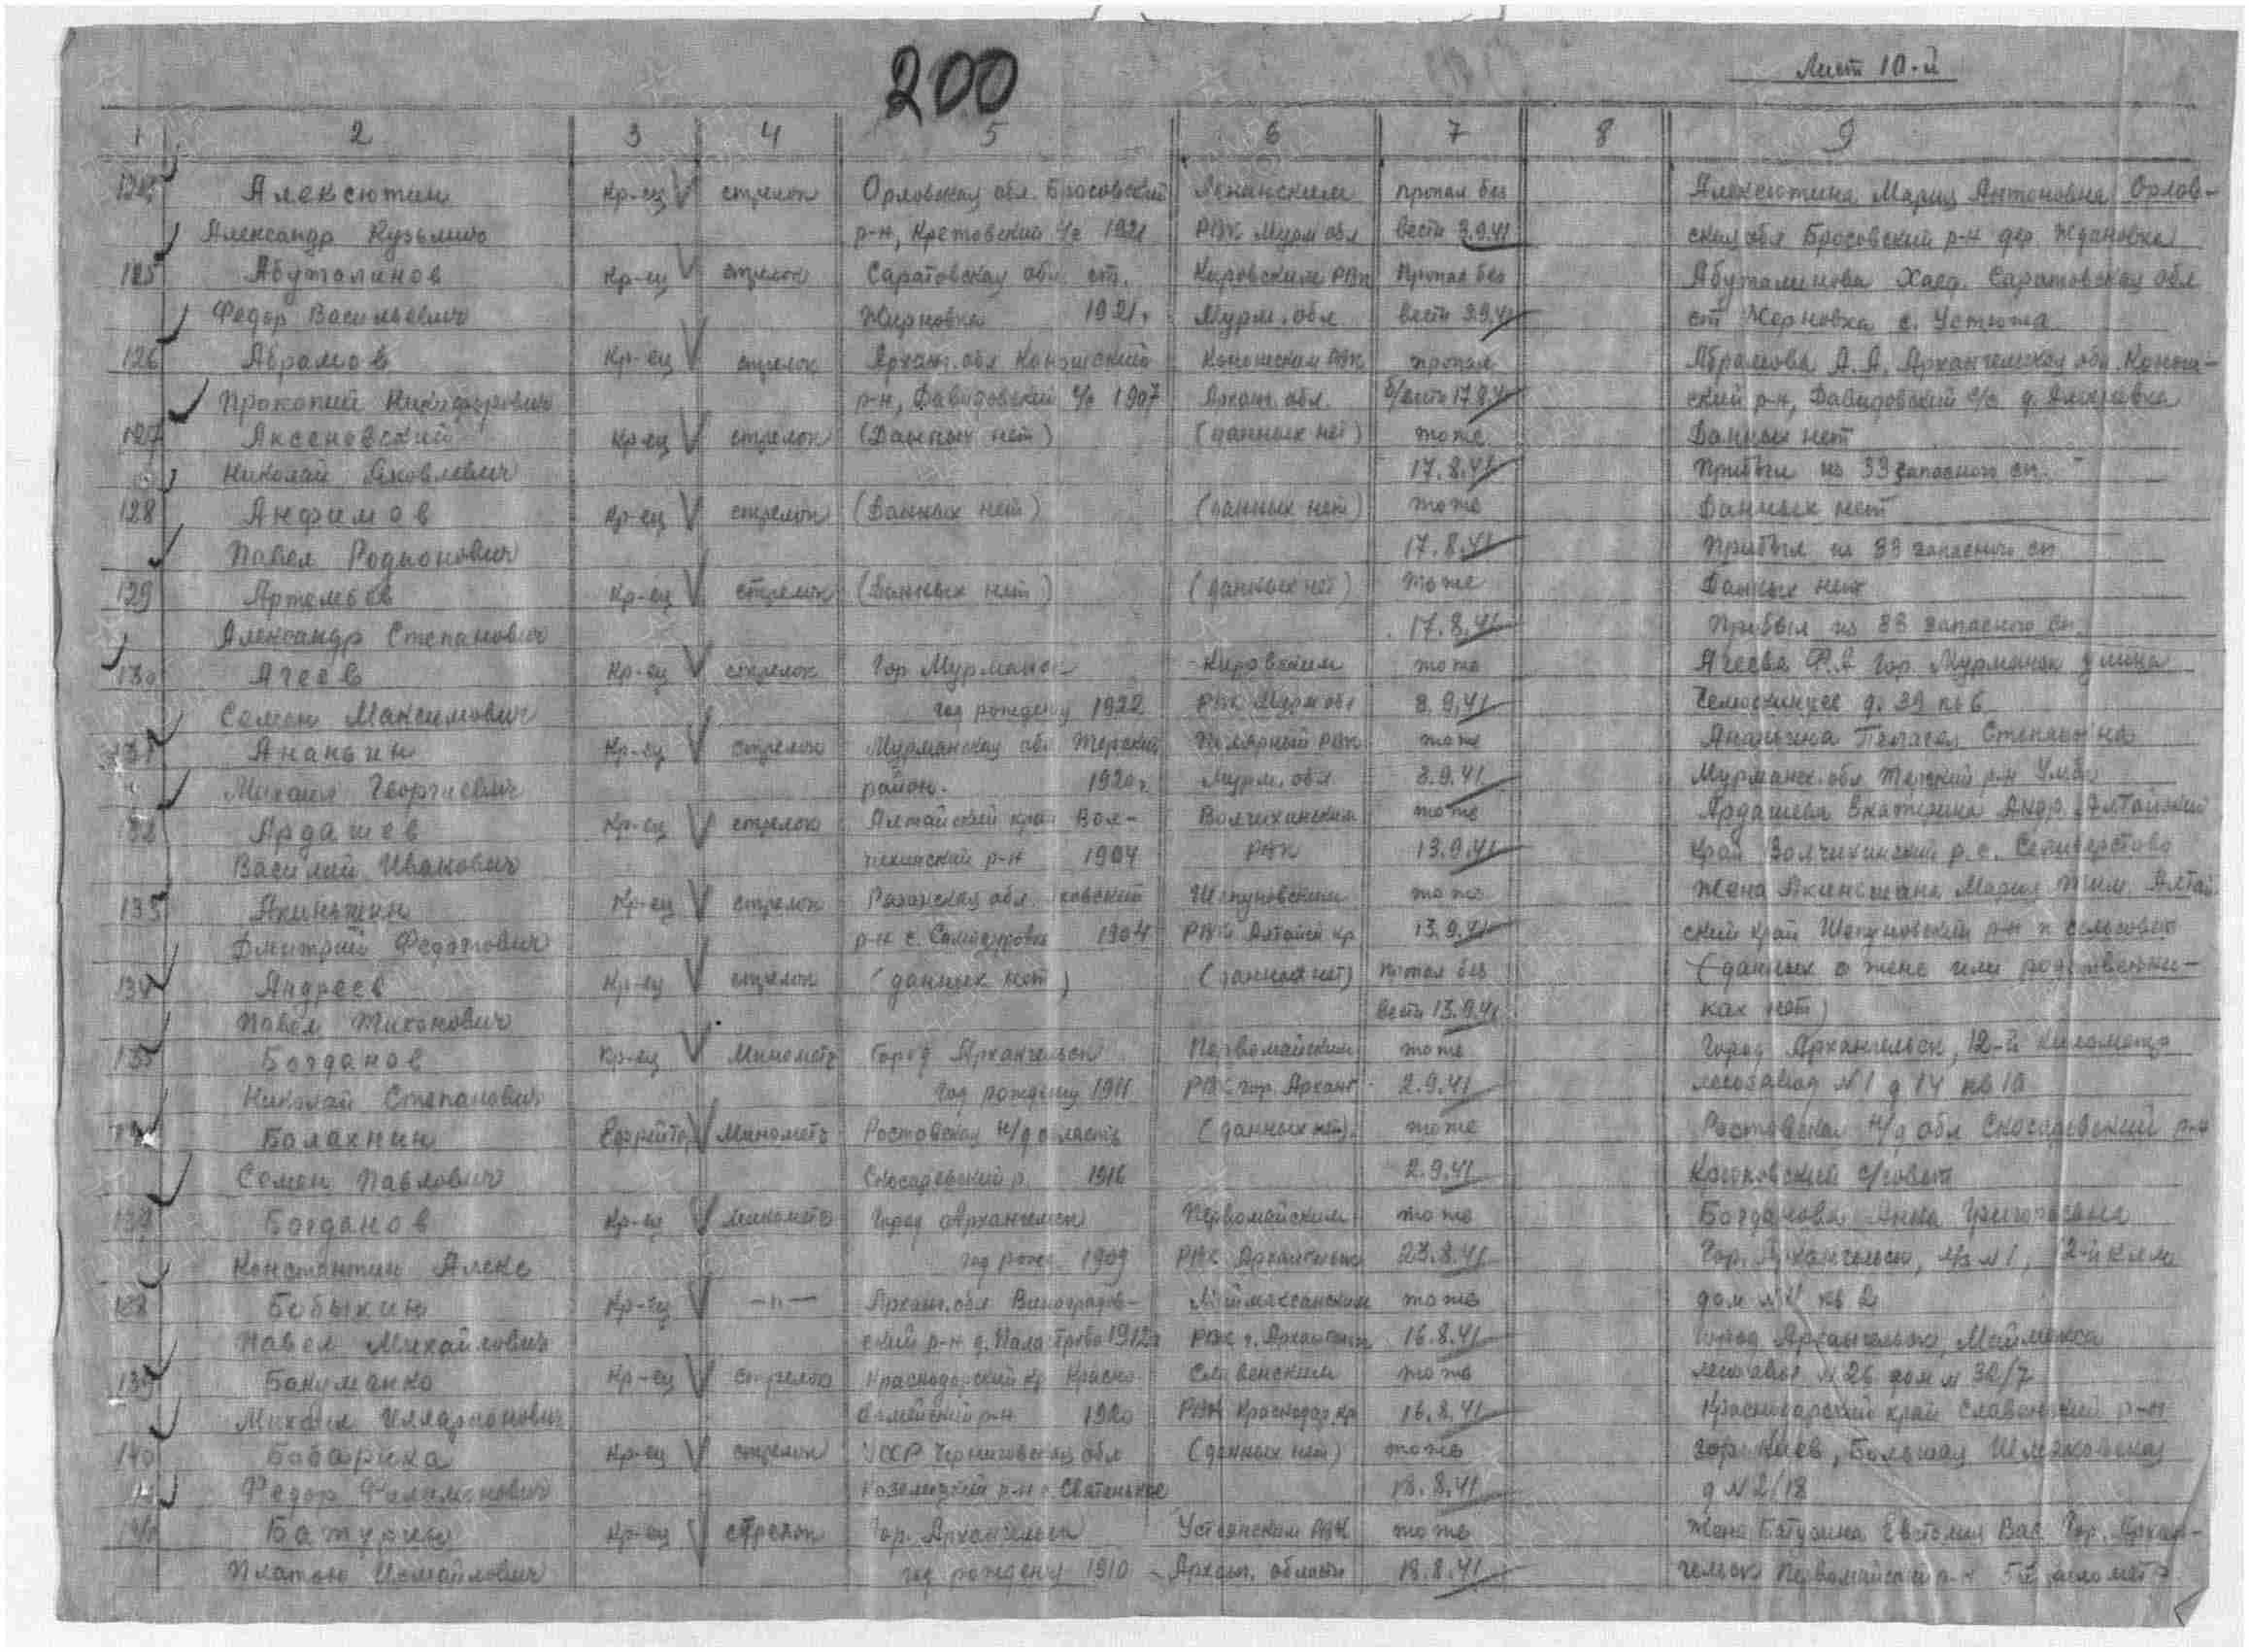 200
Лист 10-й
1 2 3 4 5 6 7 8 9
124 Алексютин Кр-ец стрелок Орловская обл. Бросовский РВК пропал без Алексютина Мария Антоновна Орлов-
Александр Кузьмич р-н, Кретовский с/с 1921 РВК Мурм обл вести 3.9.41 ская обл Бросовский р-н дер. Ждановка
125 Абуталинов Кр-ец стрелок Саратовская обл. ст. Кировским РВК Пропал без Абуталинова Саратовская обл
Федор Васильевич Жирновка 1921г Мурм. обл вести 3.9.41 ст Жерновка с.
126 Абрамов Кр-ец стрелок Арханг. обл Коношский Коношским РВК пропал Абрамова А.А. Архангельская обл. Конош-
Прокопий Никифорович р-н, Давыдовский с/с 1907 Арханг. обл. б/вести 17.8.41 ский р-н, Давыдовский с/с д.
127 Аксеновский Кр-ец стрелок (Данных нет) (данных нет) тоже Данных нет
Николай Яковлевич 17.8.41 Прибыл из 33 запасного сп.
128 Анфимов Кр-ец стрелок (Данных нет) (данных нет) тоже Данных нет
Павел Родионович 17.8.41 Прибыл из 33 запасного сп
129 Артемьев Кр-ец стрелок (Данных нет) (данных нет) тоже Данных нет
Александр Степанович 17.8.41 Прибыл из 33 запасного сп.
130 Агеев Кр-ец стрелок Гор Мурманск Кировским тоже Агеева Ф.А гор. Мурманск улица
Семен Максимович год рождения 1922 РВК Мурм обл 8.9.41 Челюскинцев д. 39 кв 6
131 Ананьин Кр-ец стрелок Мурманская обл Терский Полярный РВК тоже Ананьина Пелагея Степановна
Михаил Георгиевич район. 1920г. Мурм. обл 3.9.41 Мурманск. обл Терский р-н Умба
132 Ардашев Кр-ец стрелок Алтайский край Вол- Волчихинским тоже Ардашева Екатерина Андр. Алтайский
Василий Иванович чихинский р-н 1904 РВК 13.9.41 край Волчихинский р. с. Селиверстово
133 Акиньшин Кр-ец стрелок Рязанская обл. Шипуновским тоже Жена Акиньшина Мария Тим. Алтай
Дмитрий Федотович р-н с. 1904 РВК Алтайск кр 13.9.41 ский край Шипуновский р-н сельсовет
134 Андреев Кр-ец стрелок (данных нет) (данных нет) пропал без (данных о жене или родственни-
Павел Тихонович вести 13.9.41 ках нет)
135 Богданов Кр-ец Минометч Город Архангельск Первомайским тоже Город Архангельск, 12-й километр
Николай Степанович год рождения 1911 РВК гор. Арханг. 2.9.41 лесозавод N1 д 14 кв 10
Балахнин Ефрейтор Минометч Ростовская н/д область (данных нет) тоже Ростовская н/д обл Скосыревский р-н
Семен Павлович Скосаревский р 1916 2.9.41 с/совет
137 Богданов Кр-ец минометч Город Архангельск Первомайским тоже Богданова Анна Григорьевна
Константин Алекс год рожд 1909 РВК Архангельск 23.8.41 Гор. Архангельск, л/з N1, 12-й килм
138 Бебыкин Кр-ец —"— Арханг. обл Виноградов- Маймаксанским тоже дом N кв 2
Павел Михайлович ский р-н д. 1912г РВК г. Архангельск 16.8.41 Город Архангельск, Маймакса
139 Бакуменко Кр-ец стрелок Краснодарский кр Красно Славенским тоже лесозавод N 26 дом N 32/7
Михаил Илларионович армейский р-н 1920 РВК Краснодар. кр 16.8.41 Краснодарский край Славянский р-н
140 Бабарика Кр-ец стрелок УССР Черниговская обл (данных нет) тоже гор. Киев, Большая Шияновская
Федор Филимонович Козелецкий р-н с. 18.8.41 д N 2/18
Батурин Кр-ец стрелок Гор. Архангельск Устьянским РВК тоже Жена Батурина Евстолия Вас. Гор. Архан-
Платон Измайлович год рождения 1910 Арханг. области 18.8.41 гельск Первомайский р-н